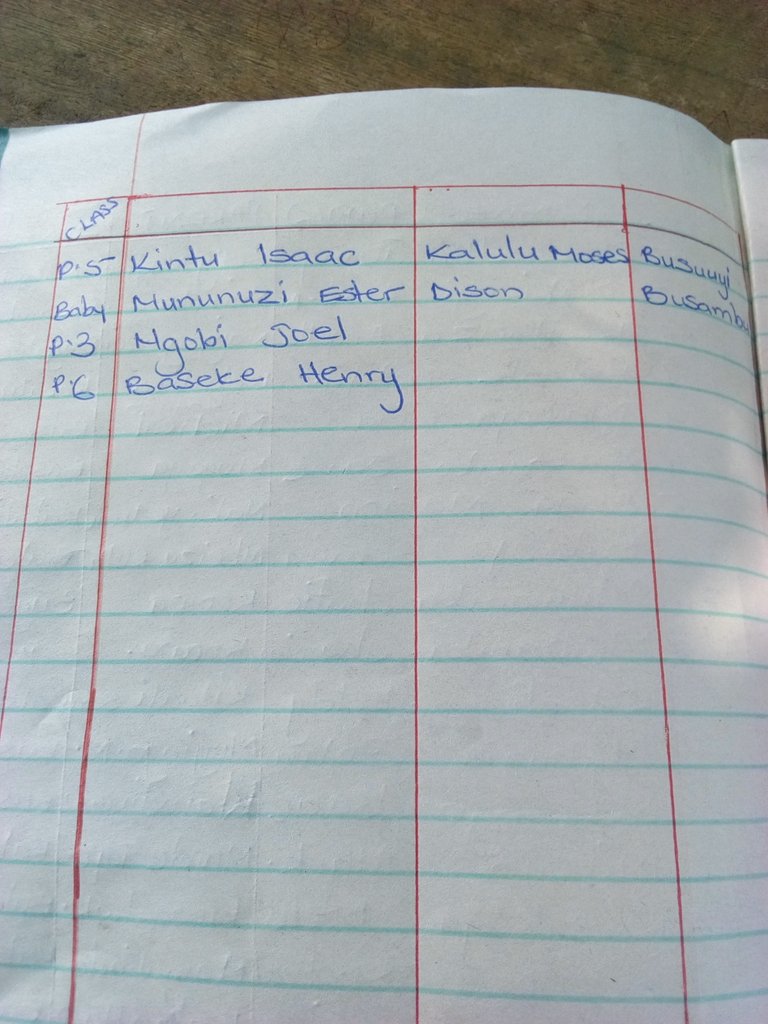 CLASS
P.5 Kintu Isaac Kalulu Moses Busuuyi
Baby Mununuzi Ester Dison
P.3 Ngobi Joel
P.6 Baseke Henry